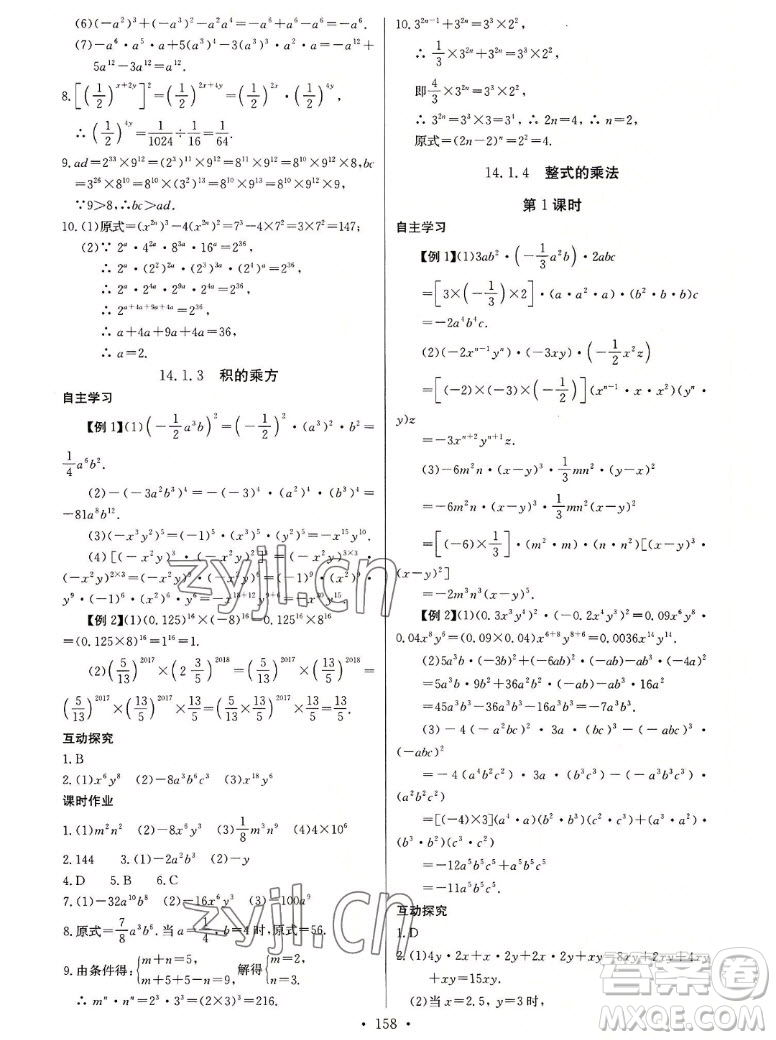 (6)(-a²)³+(-a³)²=-a⁶+a⁶=0
(7)-a⁶·a⁵·a+5(a³)⁴-3(a³)³·a²·a=-a¹²+
5a¹²-3a¹²=a¹².
8.[(1/2)^(x+2y)]²=(1/2)^(2x+4y)=(1/2)^(2x)·(1/2)^(4y),
∴(1/2)^(4y)=1/1024÷1/16=1/64.
9.ad=2³³×9¹²=(2³)¹¹×9¹²=8¹¹×9¹²=8¹⁰×9¹²×8,bc
=3²⁶×8¹⁰=(3²)¹³×8¹⁰=9¹³×8¹⁰=8¹⁰×9¹²×9,
∵9>8,∴bc>ad.
10.(1)原式=(x²ⁿ)³-4(x²ⁿ)²=7³-4×7²=3×7²=147;
(2)∵2ᵃ·4²ᵃ·8³ᵃ·16ᵃ=2³⁶,
∴2ᵃ·(2²)²ᵃ·(2³)³ᵃ·(2⁴)ᵃ=2³⁶,
∴2ᵃ·2⁴ᵃ·2⁹ᵃ·2⁴ᵃ=2³⁶,
∴2^(a+4a+9a+4a)=2³⁶,
∴a+4a+9a+4a=36,
∴a=2.
14.1.3 积的乘方
自主学习
【例1】(1)(-1/2a³b)²=(-1/2)²·(a³)²·b²=
1/4a⁶b².
(2)-(-3a²b³)⁴=-(-3)⁴·(a²)⁴·(b³)⁴=
-81a⁸b¹².
(3)(-x³y²)⁵=(-1)⁵·(x³)⁵·(y²)⁵=-x¹⁵y¹⁰.
(4)[(-x²y)³·(-x²y)²]³=(-x²y)^(3×3)·
(-x²y)^(2×3)=(-x²y)⁹·(-x²y)⁶=(-1)⁹·(x²)⁹·
y⁹·(-1)⁶·(x²)⁶·y⁶=-x¹⁸⁺¹²y⁹⁺⁶=-x³⁰y¹⁵.
【例2】(1)(0.125)¹⁶×(-8)¹⁶=0.125¹⁶×8¹⁶
=(0.125×8)¹⁶=1¹⁶=1.
(2)(5/13)²⁰¹⁷×(2 3/5)²⁰¹⁸=(5/13)²⁰¹⁷×(13/5)²⁰¹⁸
=(5/13)²⁰¹⁷×(13/5)²⁰¹⁷×(13/5)=(5/13×13/5)²⁰¹⁷×13/5=13/5.
互动探究
1.B
2.(1)x⁶y⁸ (2)-8a³b⁶c³ (3)x¹⁸y⁶
课时作业
1.(1)m²n² (2)-8x⁶y³ (3)1/8m³n⁹ (4)4×10⁶
2.144 3.(1)-2a²b³ (2)-y
4.D 5.B 6.C
7.(1)-32a¹⁰b⁸ (2)-16x⁶y³ (3)100a⁹
8.原式=7/8a³b⁶.当a=1/4,b=4时,原式=56.
9.由条件得:{m+n=5, m+5+5-n=9,解得{m=2, n=3.
∴mⁿ·nⁿ=(mn)ⁿ=(2×3)³=216.
10.3²ⁿ⁻¹+3²ⁿ=3³×2²,
∴1/3×3²ⁿ+3²ⁿ=3³×2²,
即4/3×3²ⁿ=3³×2²,
∴3²ⁿ=3³×3=3⁴,∴2n=4,
原式=(2n-2)ⁿ=2²=4.
14.1.4 整式的乘法
第1课时
自主学习
【例1】(1)3ab²·(-1/3a²b)·2abc
=[3×(-1/3)×2]·(a·a²·a)·(b²·b·b)c
=-2a⁴b⁴c.
(2)(-2xⁿ⁻¹yⁿ)·(-3xy)·(-1/2x²z)
=[(-2)×(-3)×(-1/2)](xⁿ⁻¹·x·x²)(yⁿ·
y)z
=-3xⁿ⁺²yⁿ⁺¹z.
(3)-6m²n·(x-y)³·1/3mn²·(y-x)²
=-6m²n·1/3mn²(x-y)³·(x-y)²
=[(-6)×1/3]·(m²·m)·(n·n²)[(x-y)³·
(x-y)²]
=-2m³n³(x-y)⁵.
【例2】(1)(0.3x³y⁴)²·(-0.2x⁴y³)²=0.09x⁶y⁸·
0.04x⁸y⁶=(0.09×0.04)x⁶⁺⁸y⁸⁺⁶=0.0036x¹⁴y¹⁴.
(2)5a³b·(-3b)²+(-ab)³·(-6ab)-ab³·(-4a)²
=5a³b·9b²+(-a³b³)-ab³·16a²
=45a³b³-a³b³-16a³b³
(3)-4(-a²bc)²·3a·(bc)³-(-abc)³·
(-abc)²
=-4(a⁴b²c²)·3a·(b³c³)-(-a³b³c³)·
(a²b²c²)
=[(-4)×3](a⁴·a)(b²·b³)(c²·c³)+(a³·a²)·
(b³·b²)(c³·c²)
=-12a⁵b⁵c⁵+a⁵b⁵c⁵
=-11a⁵b⁵c⁵.
互动探究
1.D
2.(1)4y·2x+x·2y+2x·y+xy=8xy+2xy+4xy
+xy=15xy.
(2)当x=2.5,y=3时,
·158·
zyjl.cn
zyjl.cn
答案圈
MXQE.COM